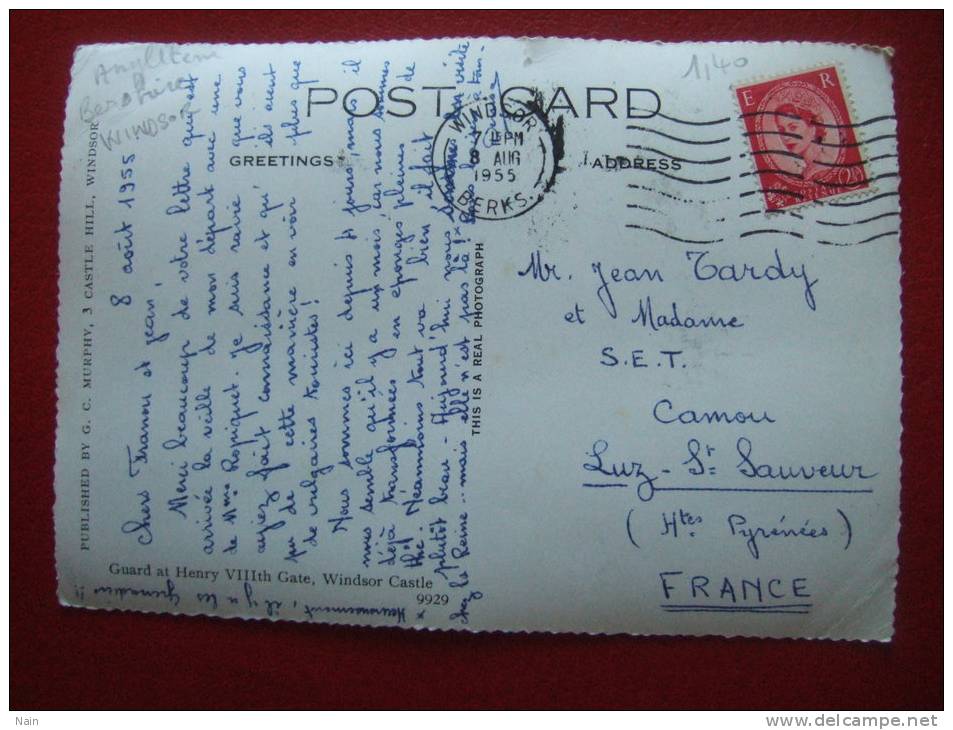 Angleterre
Berkshire
WINDSOR
1,40
POST CARD
GREETINGS
ADDRESS
WINDSOR
7 PM
8 AUG
1955
BERKS.
E R
PUBLISHED BY G. C. MURPHY, 3 CASTLE HILL, WINDSOR
8 août 1955
Chers Franou et Jean,
Merci beaucoup de votre lettre qui est
arrivée la veille de mon départ avec une
de Mme Ropiquet. Je suis ravie que vous
ayiez fait connaissance et qu'ils aient
pu de cette manière en voir plus que
de vulgaires touristes!
Nous sommes ici depuis 4 jours, mais il
nous semble qu'il y a un mois, car nous sommes
déjà transformées en éponges pleines de
thé. Néanmoins tout va bien, il fait
plutôt beau. Aujourd'hui nous sommes en visite
chez la Reine -- mais elle n'est pas là! x
x Heureusement, il y a les grenadiers!!
THIS IS A REAL PHOTOGRAPH
Guard at Henry VIIIth Gate, Windsor Castle
9929
Mr. Jean Tardy
et Madame
S.E.T.
Camou
Luz-St Sauveur
(Htes Pyrénées)
FRANCE
Nain
www.delcampe.net